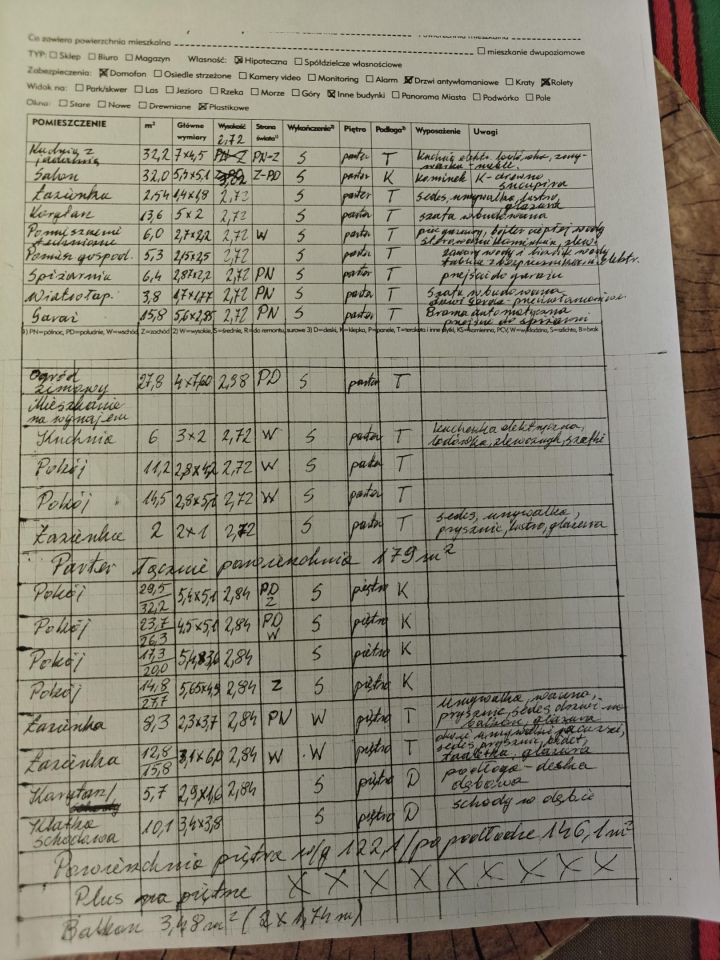 Co zawiera powierzchnia mieszkalna
mieszkanie dwupoziomowe
TYP: Sklep Biuro Magazyn Własność: Hipoteczna Spółdzielcze własnościowe
Zabezpieczenia: Domofon Osiedle strzeżone Kamery video Monitoring Alarm Drzwi antywłamaniowe Kraty Rolety
Widok na: Park/skwer Las Jezioro Rzeka Morze Góry Inne budynki Panorama Miasta Podwórko Pole
Okna: Stare Nowe Drewniane Plastikowe
POMIESZCZENIE m² Główne wymiary Wysokość 2,72 Strona świata¹⁾ Wykończenie²⁾ Piętro Podłoga³⁾ Wyposażenie Uwagi
Kuchnia z jadalnią 32,2 7×4,5 PN-Z S parter T Kuchnia elektr. lodówka, zmywarka
Salon 32,0 Z-PD S parter K Kominek K-drewno sucupira
Łazienka 2,54 1,4×1,8 2,72 S parter T Sedes, umywalka, lustro, glazura
Korytarz 13,6 5×2 2,72 S parter T szafa wbudowana
6,0 2,7×2,2 W S parter T piec gazowy, bojler ciepłej wody
Pomiesz. gospod. 5,3 2,15×2,5 2,72 S parter T
Spiżarnia 6,4 2,87×2,2 2,72 PN S parter T przejście do garażu
Wiatrołap. 3,8 2,72 PN S parter T Szafa wbudowana
Garaż 15,8 5,6×2,85 2,72 PN S parter T Brama automatyczna przejście do spiżarni
1) PN=północ, PD=południe, W=wschód, Z=zachód 2) W=wysokie, S=średnie, R=do remontu, surowe 3) D=deski, K=klepka, P=panele, T=terakota i inne płytki, KS=kamienne, PCV, W=wykładzina, S=szlichta, B=brak
Ogród zimowy 27,8 4×7,60 2,98 PD S parter T
Mieszkanie na wynajem
Kuchnia 6 3×2 2,72 W S parter T kuchenka elektryczna, lodówka, zlewozmyw, szafki
Pokój 11,2 2,8×4,2 2,72 W S parter T
Pokój 14,5 2,8×5,1 2,72 W S parter T
Łazienka 2 2×1 2,72 S parter T sedes, umywalka, prysznic, lustro, glazura
Parter łącznie powierzchnia 179 m²
Pokój 29,5 32,2 5,4×5,1 2,84 PD Z S piętro K
Pokój 23,7 26,3 4,5×5,1 2,84 PD W S piętro K
Pokój 17,3 20,0 2,84 S piętro K
Pokój 14,8 5,65×4,9 2,84 Z S piętro K
Łazienka 8,3 2,3×3,7 2,84 PN W piętro T umywalka, wanna, prysznic, sedes, drzwi na balkon, glazura
Łazienka 12,8 15,8 2,84 W W piętro T sedes, prysznic, bidet, glazura
Korytarz/ 5,7 2,9×1,6 2,84 S piętro D podłoga - deska dębowa
Klatka schodowa 10,1 3,4×3,8 S piętro D schody w dębie
Powierzchnia piętra w/g 122,1/po podłodze 146,1 m²
Plus na piętrze X X X X X X X X X
Balkon 3,48 m² (2 × 1,74 m)